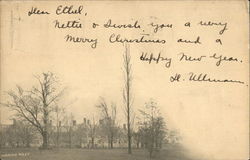 Dear Ethel,
Nettie & I wish you a very
Merry Christmas and a
Happy New Year.
H. Ullmann.